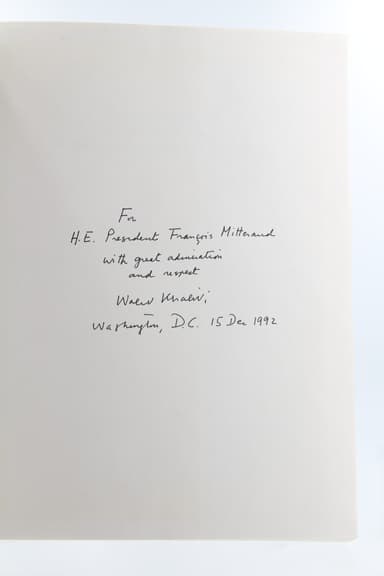 For
H.E. President François Mitterand
with great admiration
and respect
Walid Khalidi
Washington, D.C. 15 Dec 1992